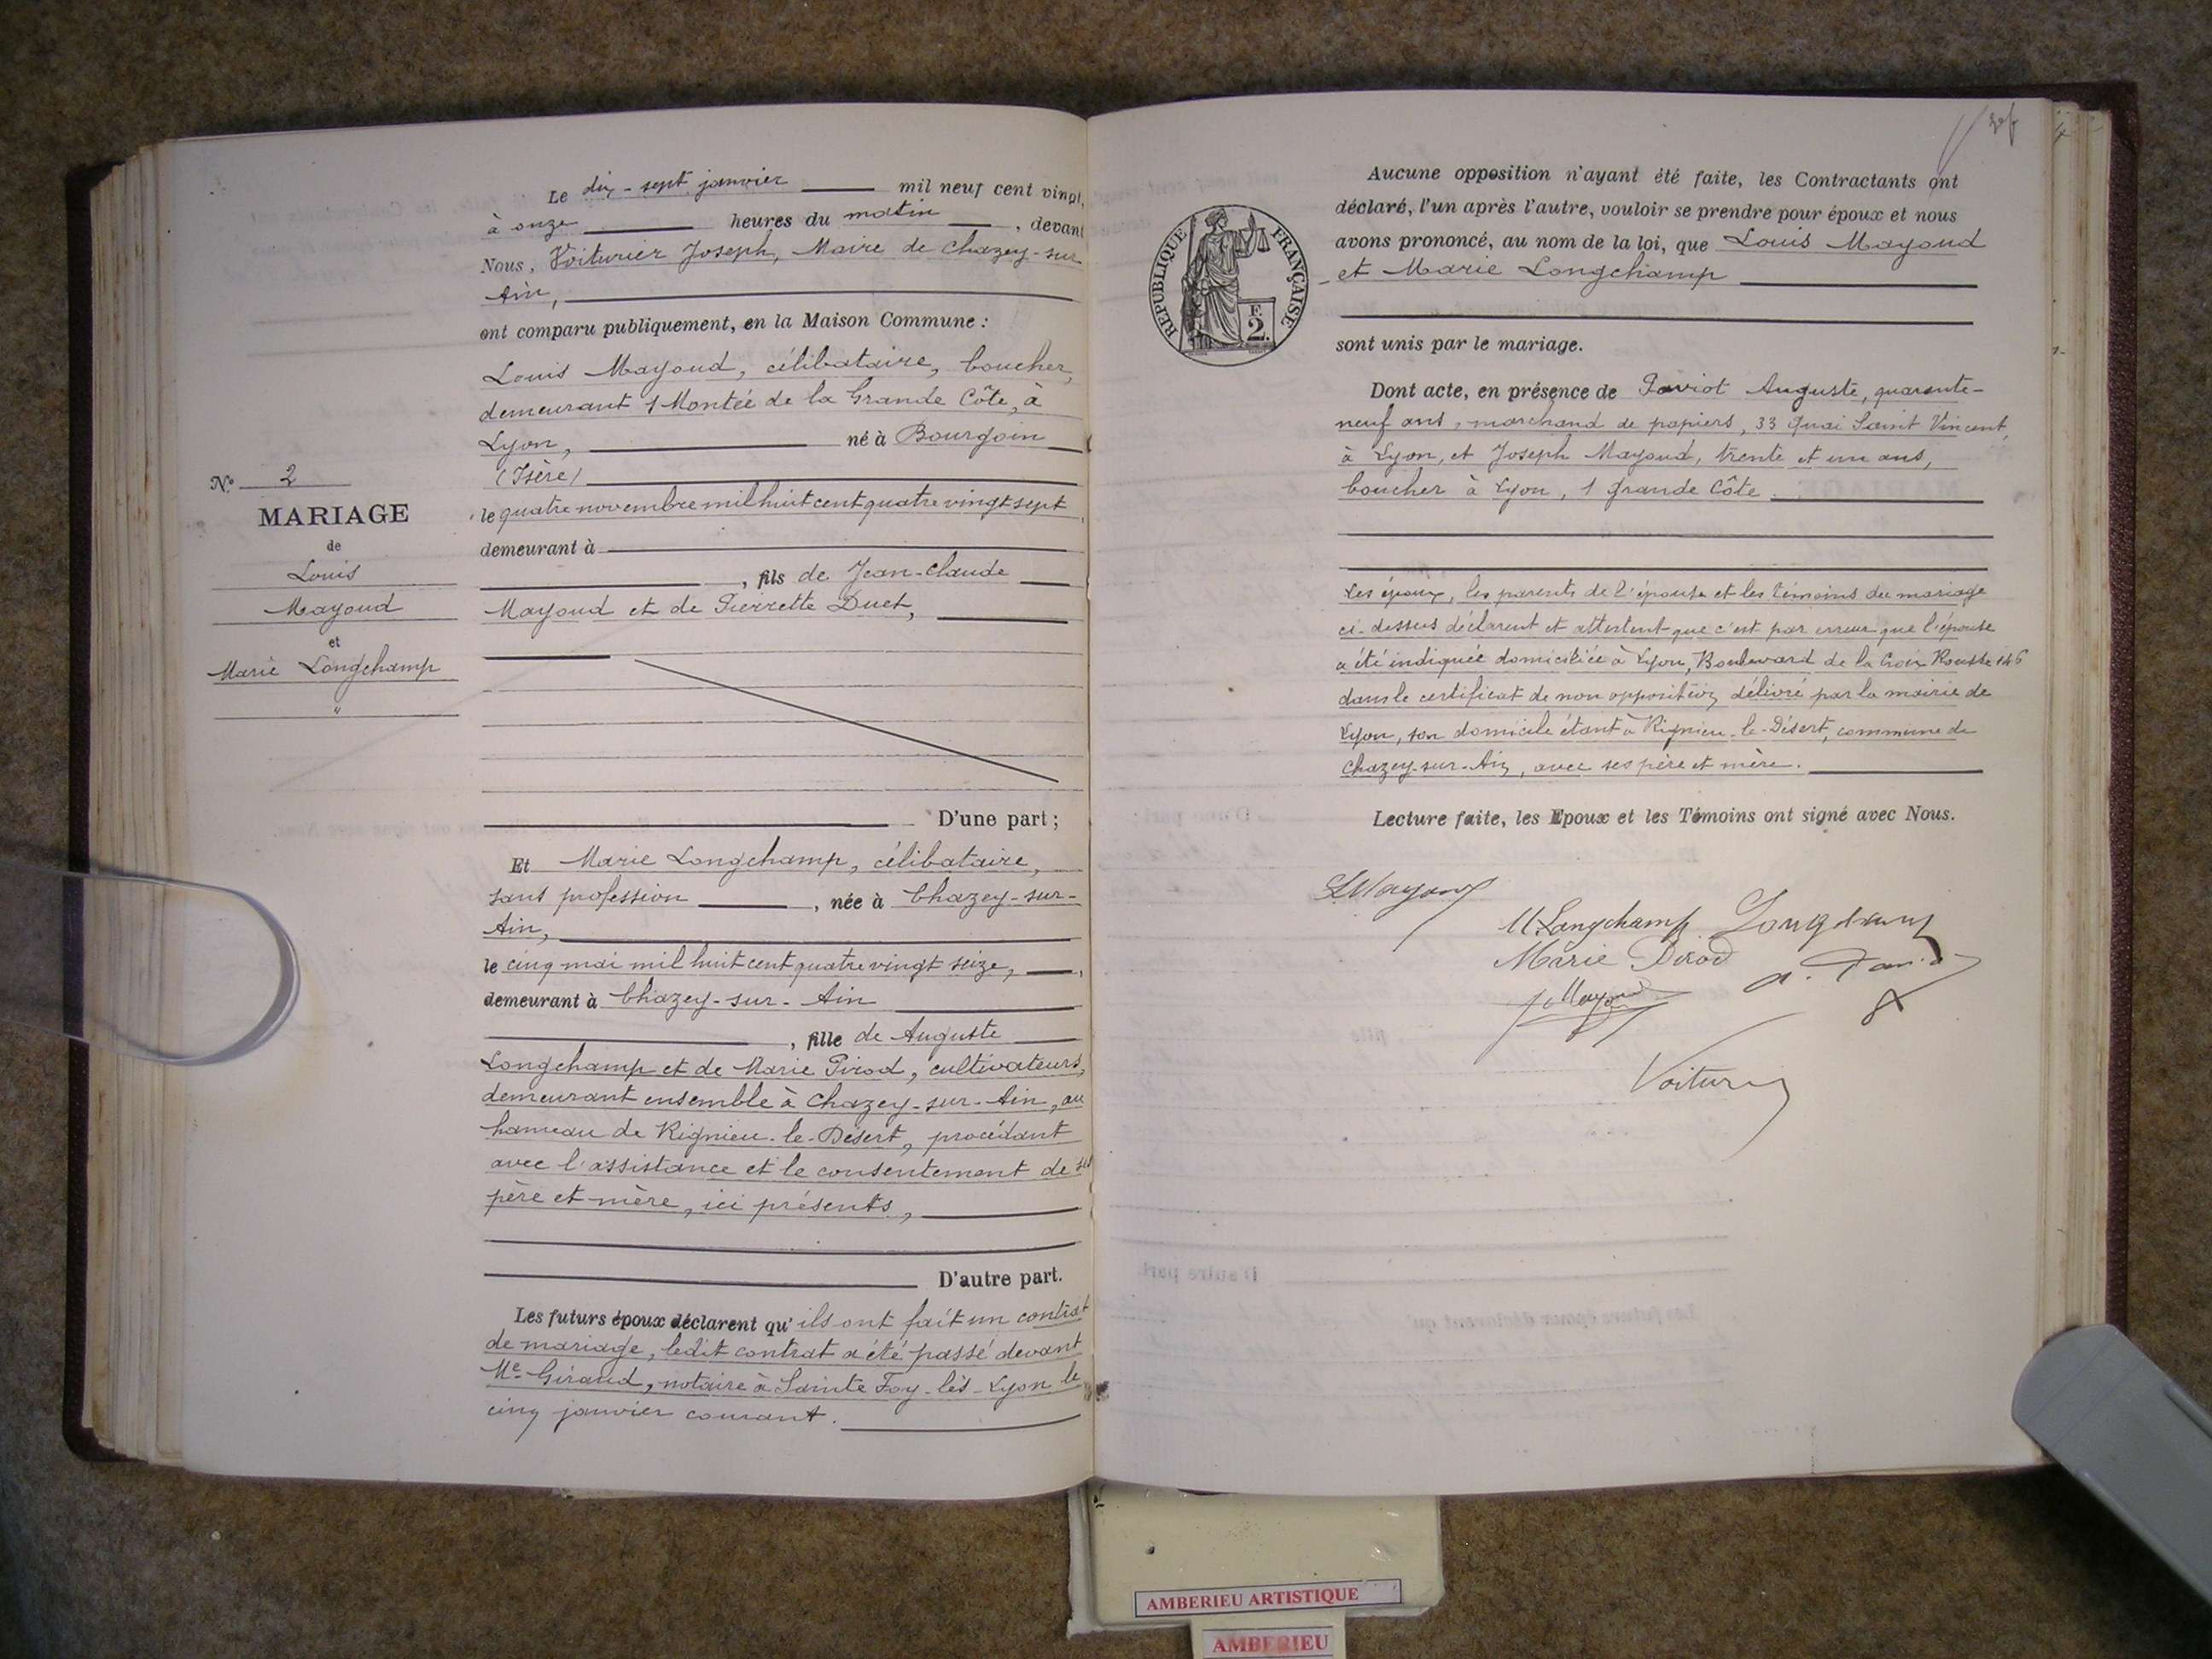 N° 2
MARIAGE
de
Louis
Mayoud
et
Marie Longchamp
"
Le dix-sept janvier mil neuf cent vingt,
à onze heures du matin, devant
Nous, Voiturier Joseph, Maire de Chazey-sur
Ain,
ont comparu publiquement, en la Maison Commune :
Louis Mayoud, célibataire, boucher,
demeurant 1 Montée de la Grande Côte, à
Lyon, né à Bourgoin
(Isère)
le quatre novembre mil huit cent quatre vingt sept
demeurant à
, fils de Jean-Claude
Mayoud et de Pierrette Duet,
D'une part ;
Et Marie Longchamp, célibataire,
sans profession, née à Chazey-sur-
Ain,
le cinq mai mil huit cent quatre vingt seize,
demeurant à Chazey-sur-Ain
, fille de Auguste
Longchamp et de Marie Pirod, cultivateurs,
demeurant ensemble à Chazey-sur-Ain, au
hameau de Rignieu-le-Désert, procédant
avec l'assistance et le consentement de ses
père et mère, ici présents,
D'autre part.
Les futurs époux déclarent qu'ils ont fait un contrat
de mariage, ledit contrat a été passé devant
Me Giraud, notaire à Sainte Foy-lès-Lyon le
cinq janvier courant.
Aucune opposition n'ayant été faite, les Contractants ont
déclaré, l'un après l'autre, vouloir se prendre pour époux et nous
avons prononcé, au nom de la loi, que Louis Mayoud
et Marie Longchamp
sont unis par le mariage.
REPUBLIQUE FRANÇAISE
F.
2.
Dont acte, en présence de Paviot Auguste, quarante-
neuf ans, marchand de papiers, 33 quai Saint Vincent,
à Lyon, et Joseph Mayoud, trente et un ans,
boucher à Lyon, 1 grande Côte.
Les époux, les parents de l'épouse et les témoins du mariage
ci-dessus déclarent et attestent que c'est par erreur que l'épouse
a été indiquée domiciliée à Lyon, Boulevard de la Croix Rousse 146
dans le certificat de non opposition délivré par la mairie de
Lyon, son domicile étant à Rignieu-le-Désert, commune de
Chazey-sur-Ain, avec ses père et mère.
Lecture faite, les Epoux et les Témoins ont signé avec Nous.
L Mayoud
M Longchamp Longchamp
Marie Pirod
J Mayoud
Voiturier
AMBERIEU ARTISTIQUE
AMBERIEU